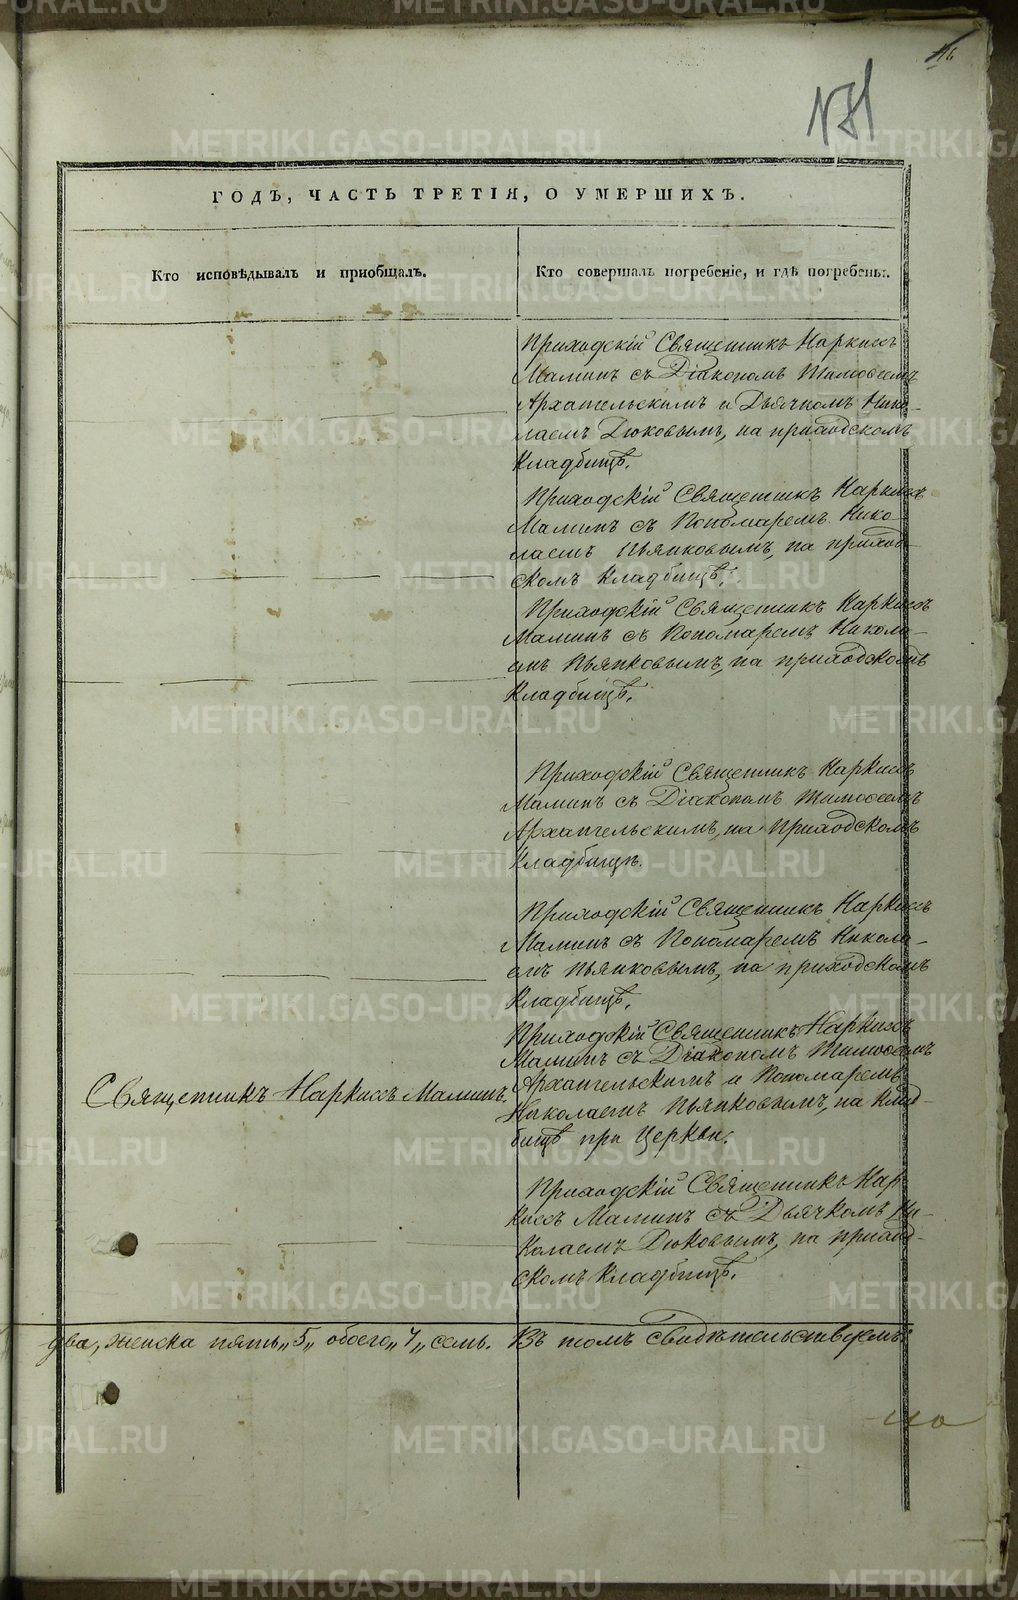 METRIKI.GASO-URAL.RU
ГОДЪ, ЧАСТЬ ТРЕТІЯ, О УМЕРШИХЪ.
Кто исповѣдывалъ и пріобщалъ.
Кто совершалъ погребеніе, и гдѣ погребены.
Приходскій Священникъ Наркиссъ
Маминъ съ Діакономъ Тимоѳеемъ
Архангельскимъ и Дьячкомъ Нико-
лаемъ Дюковымъ, на приходскомъ
Кладбищѣ.
Приходскій Священникъ Наркиссъ
Маминъ съ Пономаремъ Нико-
лаемъ Пьянковымъ, на приход-
скомъ Кладбищѣ.
Приходскій Священникъ Наркиссъ
Маминъ съ Пономаремъ Никола-
емъ Пьянковымъ, на приходскомъ
Кладбищѣ.
Приходскій Священникъ Наркиссъ
Маминъ съ Діакономъ Тимоѳеемъ
Архангельскимъ, на Приходскомъ
Кладбищѣ.
Приходскій Священникъ Наркиссъ
Маминъ съ Пономаремъ Никола-
емъ Пьянковымъ, на приходскомъ
Кладбищѣ.
Священникъ Наркиссъ Маминъ.
Приходскій Священникъ Наркиссъ
Маминъ съ Діакономъ Тимоѳеемъ
Архангельскимъ и Пономаремъ
Николаемъ Пьянковымъ, на Клад-
бищѣ при Церкви.
Приходскій Священникъ Нар-
киссъ Маминъ съ Дьячкомъ Ни-
колаемъ Дюковымъ, на приход-
скомъ Кладбищѣ.
два, женска пять „5„ обоего „7„ семь. Въ томъ свидѣтельствуемъ: